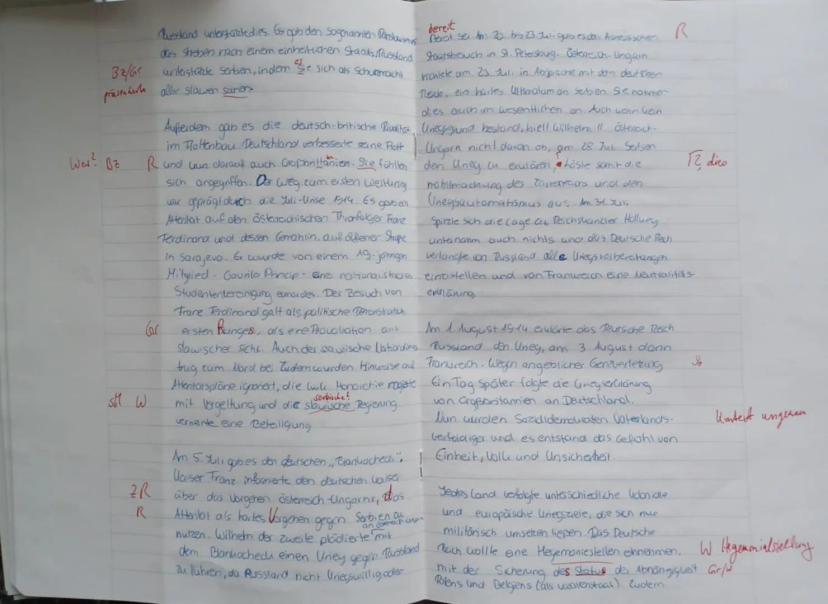 Russland unterstützte dies. Es gab den sogenannten Panslawismus
das Streben nach einem einheitlichen Staat. Russland
Bz/Gr unterstützte Serben, indem es sich als Schutzmacht
alle Slawen
Außerdem gab es die deutsch-britische Rivalität
im Flottenbau. Deutschland verbesserte seine Flotte
Wer? Bz R und kam darauf auch Großbritannien. Sie fühlten
sich angegriffen. Der Weg zum ersten Weltkrieg
war geprägt durch die Juli-Krise 1914. Es gab ein
Attentat auf den österreichischen Thronfolger Franz
Ferdinand und dessen Gemahlin auf offener Straße
in Sarajevo. Er wurde von einem 19-jährigen
Mitglied - Gavrilo Princip - eine nationalistische
Studentenvereinigung ermordet. Der Besuch von
Franz Ferdinand galt als politische Demonstration
Gr ersten Ranges, als eine Provokation aus
slawischer Sicht. Auch der serbische
trug zum Mord bei. Zudem wurden Hinweise auf
Attentatspläne ignoriert, die k.u.k. Monarchie reagierte
W mit Vergeltung und die slawische Regierung
serbische?
verneinte eine Beteiligung
Am 5. Juli gab es den deutschen „Blankocheck“.
Kaiser Franz informierte den deutschen Kaiser
Z R über das Vorgehen Österreich-Ungarns, das
R Attentat als hartes Vorgehen gegen Serbien zu
nutzen. Wilhelm der zweite plädierte mit
dem Blankocheck einen Krieg gegen Russland
zu führen, da Russland nicht kriegswillig oder
bereit
bereit sei. Am 20. bis 23. Juli gab es den französischen R
Staatsbesuch in St. Petersburg. Österreich-Ungarn
stellte am 23. Juli in Absprache mit dem deutschen
Reich, ein hartes Ultimatum an Serbien. Sie nahmen
dies auch im wesentlichen an. Auch wenn kein
Kriegsgrund bestand, hielt Wilhelm II. Österreich-
Ungarn nicht davon ab, am 28. Juli Serbien
den Krieg zu erklären, löste somit die
Mobilmachung des Zarenreichs und den
Kriegsautomatismus aus. Am 31. Juli
spitzte sich die Lage zu. Reichskanzler Hollweg
unternahm auch nichts und das Deutsche Reich
verlangte von Russland alle Kriegsvorbereitungen
einzustellen und von Frankreich eine Neutralitäts-
erklärung.
Am 1. August 1914 erklärte das Deutsche Reich
Russland den Krieg, am 3. August dann
Frankreich. Wegen angeblicher Grenzverletzung
Ein Tag später folgte die Kriegserklärung
von Großbritannien an Deutschland.
Nun wurden Sozialdemokraten Vaterlands-
verteidiger und es entstand das Gefühl von
Einheit, Volk und Unsicherheit.
Jedes Land verfolgte unterschiedliche
und europäische Kriegsziele, die sich nur
militärisch umsetzen ließen. Das Deutsche
Reich wollte eine Hegemoniestellen einnehmen. W Hegemonialstellung
mit der Sicherung des Status der Abhängigkeit Gr/W
Polens und Belgiens (als Vasallenstaat). Zudem